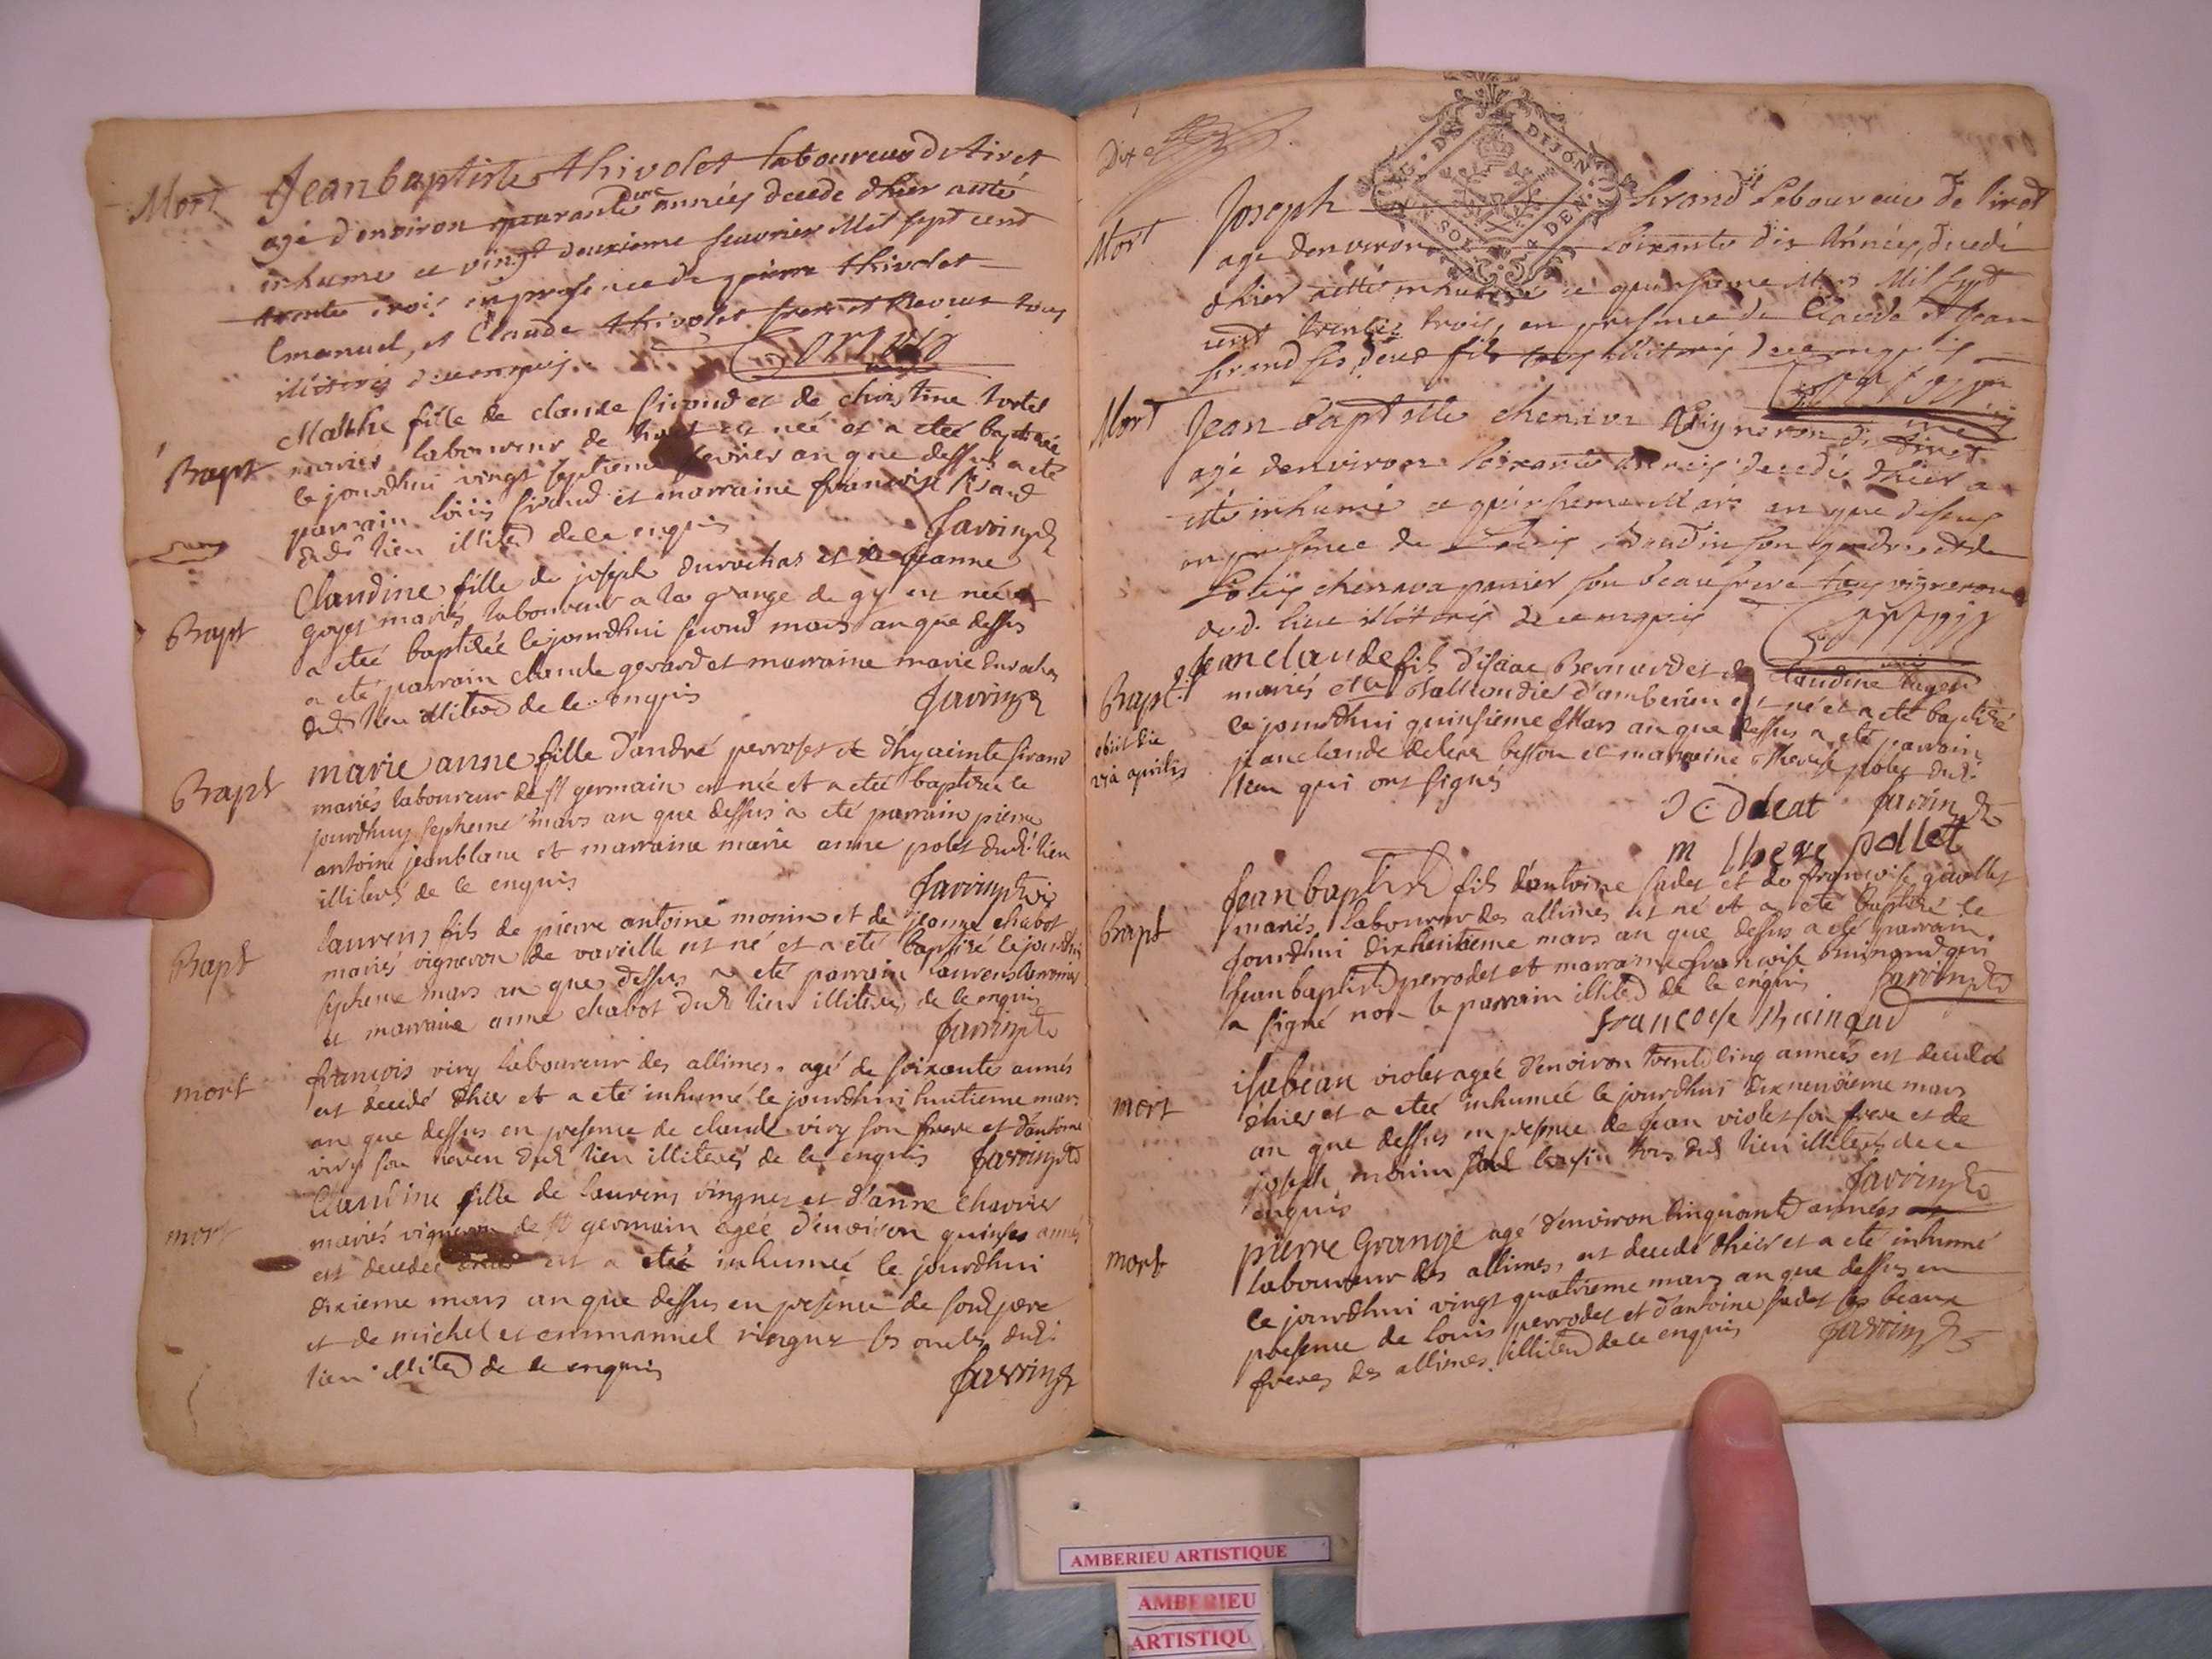 Mort Jean baptiste thivolet laboureur de tiret
agé d'environ quarante deux années decede dhier a esté
inhumé ce vingt deuxieme feuvrier Mil sept cent
trente trois en presence de pierre thivolet
Emanuel, et Claude thivolet frere et neveux tous
illiterés de ce enquis
Bapt Marthe fille de claude sirand et de christine tortel
mariés laboureur de tiret est née et a eteé baptisée
le jourdhui vingt septieme fevrier an que dessus a eté
parrain louis sirand et marraine francoise sirand
dud. lieu illiterés de ce enquis Jarrin
Bapt Claudine fille de joseph durochas et de jeanne
goyet mariés laboureur a la grange de gy est née et
a eteé baptisée le jourdhui second mars an que dessus
a eté parrain claude gerard et marraine marie durochas
dud. lieu illiterés de ce enquis Jarrin
Bapt marie anne fille d'andré perroset et dhyacinte sirand
mariés laboureur de st germain est née et a eteé baptisée le
jourdhuy septieme mars an que dessus a eté parrain pierre
antoine jeanblanc et marraine marie anne polet dud. lieu
illiterés de ce enquis Jarrin
Bapt laurens fils de pierre antoine monin et de jeanne chabot
mariés vigneron de vareille est né et a eté baptisé le jourdhui
septieme mars an que dessus a eté parrain laurens
et marraine anne chabot dud. lieu illiterés de ce enquis
Jarrin
mort francois viry laboureur des allimes agé de soixante annés
est decedé dhier et a eté inhumé le jourdhui huitieme mars
an que dessus en presence de claude viry son frere et d'antoine
viry son neveu dud. lieu illiterés de ce enquis Jarrin
mort Claudine fille de laurens vingnes et d'anne charvier
mariés vigneron de st germain ageé d'environ quinse annés
est decedeé dhier et a eteé inhumeé le jourdhui
dixieme mars an que dessus en presence de sond. pere
et de michel et emmanuel ses oncles dud.
lieu illiterés de ce enquis Jarrin
Dix
G. DE DIJON
Mort Joseph sirand laboureur de tiret
agé denviron soixante dix années, decedé
dhier a etté inhumé ce quinsieme Mars Mil sept
cent trente trois, en presence de Claude et Jean
sirand ses deux fils tous illiterés de ce enquis
Mort Jean baptiste chenava vigneron de tiret
agé denviron soixante années decedé dhier a
eté inhumé ce quinsieme Mars an que dessus
en presence de Louis Boudin son gendre et de
Louis chenava panier son beaufrere tous vignerons
dud. lieu illiterés de ce enquis
Bapt Jean claude fils d'isaac Bernard et de claudine
mariés d'amberieu est né et a eté baptisé
obiit die le jourdhui quinsieme Mars an que dessus a eté parrain
via aprilis jean claude besson et marraine Therese polet dud.
lieu qui ont signés
Jarrin
m therese pollet
Bapt Jean baptiste fils d'antoine sadet et de francoise
mariés laboureur des allimes est né et a eté baptisé le
jourdhui dixhuitieme mars an que dessus a eté parrain
Jean baptiste perrodet et marraine francoise qui
a signé non le parrain illiteré de ce enquis Jarrin
francoise
mort isabeau violet ageé d'environ trente cinq anneés est decedeé
dhier et a eteé inhumeé le jourdhui dixneuvieme mars
an que dessus en presence de jean violet son frere et de
joseph monin tous dud. lieu illiterés de ce
enquis Jarrin
mort pierre Grange agé d'environ cinquante années
laboureur des allimes, est decedé dhier et a eté inhumé
le jourdhui vingt quatrieme mars an que dessus en
presence de louis perrodet et d'antoine sadet ses beaux
freres des allimes illiterés de ce enquis Jarrin
AMBERIEU ARTISTIQUE
AMBERIEU
ARTISTIQU